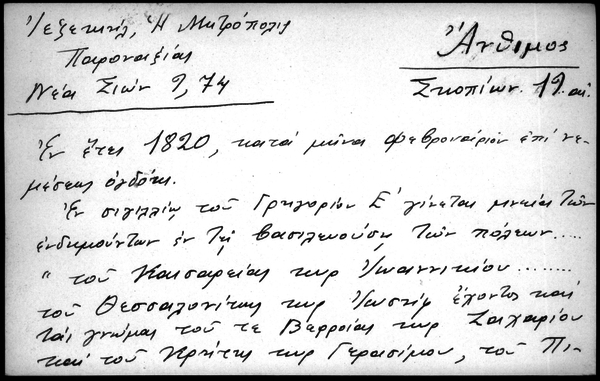 Ἰεζεκιήλ, Ἡ Μητρόπολις
Παροναξίας
Νέα Σιών 9, 74
Ἄνθιμος
Σκοπίων. 19. αἰ.
Ἐν ἔτει 1820, κατά μῆνα Φεβρουάριον ἐπινε-
μέσεως ὀγδόης.
Ἐν σιγιλλίῳ τοῦ Γρηγορίου Ε΄ γίνεται μνεία τῶν
ἐνδημούντων ἐν τῇ βασιλευούσῃ τῶν πόλεων.....
" τοῦ Καισαρείας κυρ Ἰωαννικίου ........
τοῦ Θεσσαλονίκης κυρ Ἰωσήφ ἔχοντος καί
τάς γνώμας τοῦ τε Βερροίας κυρ Ζαχαρίου
καί τοῦ Κρήτης κυρ Γερασίμου, τοῦ Πι-